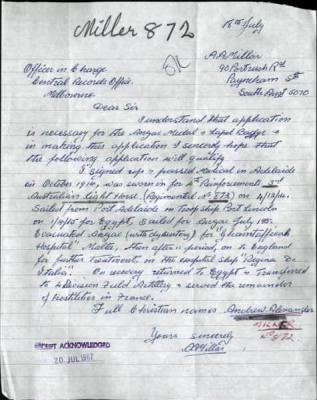 Miller 872
18th July
A.A. Millar
90 Portrush Rd
Payneham Sth
South Aust 5070
Officer in Charge
Central Records Office.
Melbourne
Dear Sir
I understand that application
is necessary for the Anzac Medal & Lapel Badge &
in making this application I sincerely hope that
the following application will qualify
I signed up & passed Medical in Adelaide
in October 1914, was sworn in for 2nd Reinforcements 3rd
Australian Light Horse. (Regimental No 872) on 4/12/14.
Sailed from Port Adelaide on Troop Ship Port Lincoln
on for Egypt. Sailed for Anzac July 1915.
Evacuated Anzac (with dysentery) for "
Hospital" Malta, then after a period, on to England
for further Treatment, in the Hospital Ship "Regina De
Italia". On recovery returned to Egypt & Transferred
to 4 Division Field Artillery & served the remainder
of hostilities in France.
Full Christian names Andrew Alexander
MILLER
No 872
Yours Sincerely
A A Millar
RECEIPT ACKNOWLEDGED
20 JUL 1967